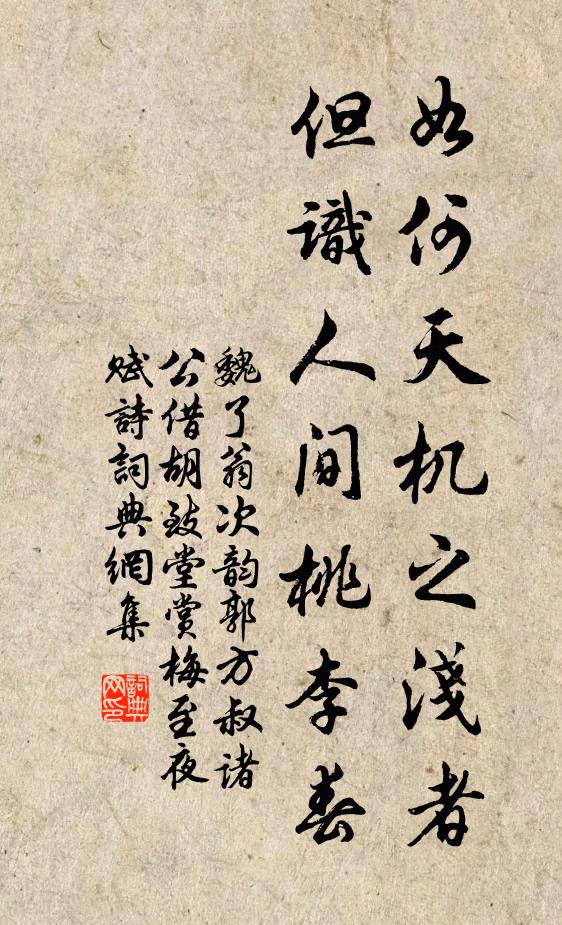 如何天机之淺者
但識人间桃李春
魏了翁次韵郭方叔诸
公借胡致堂赏梅至夜
赋詩詞典網集
詞典
网印